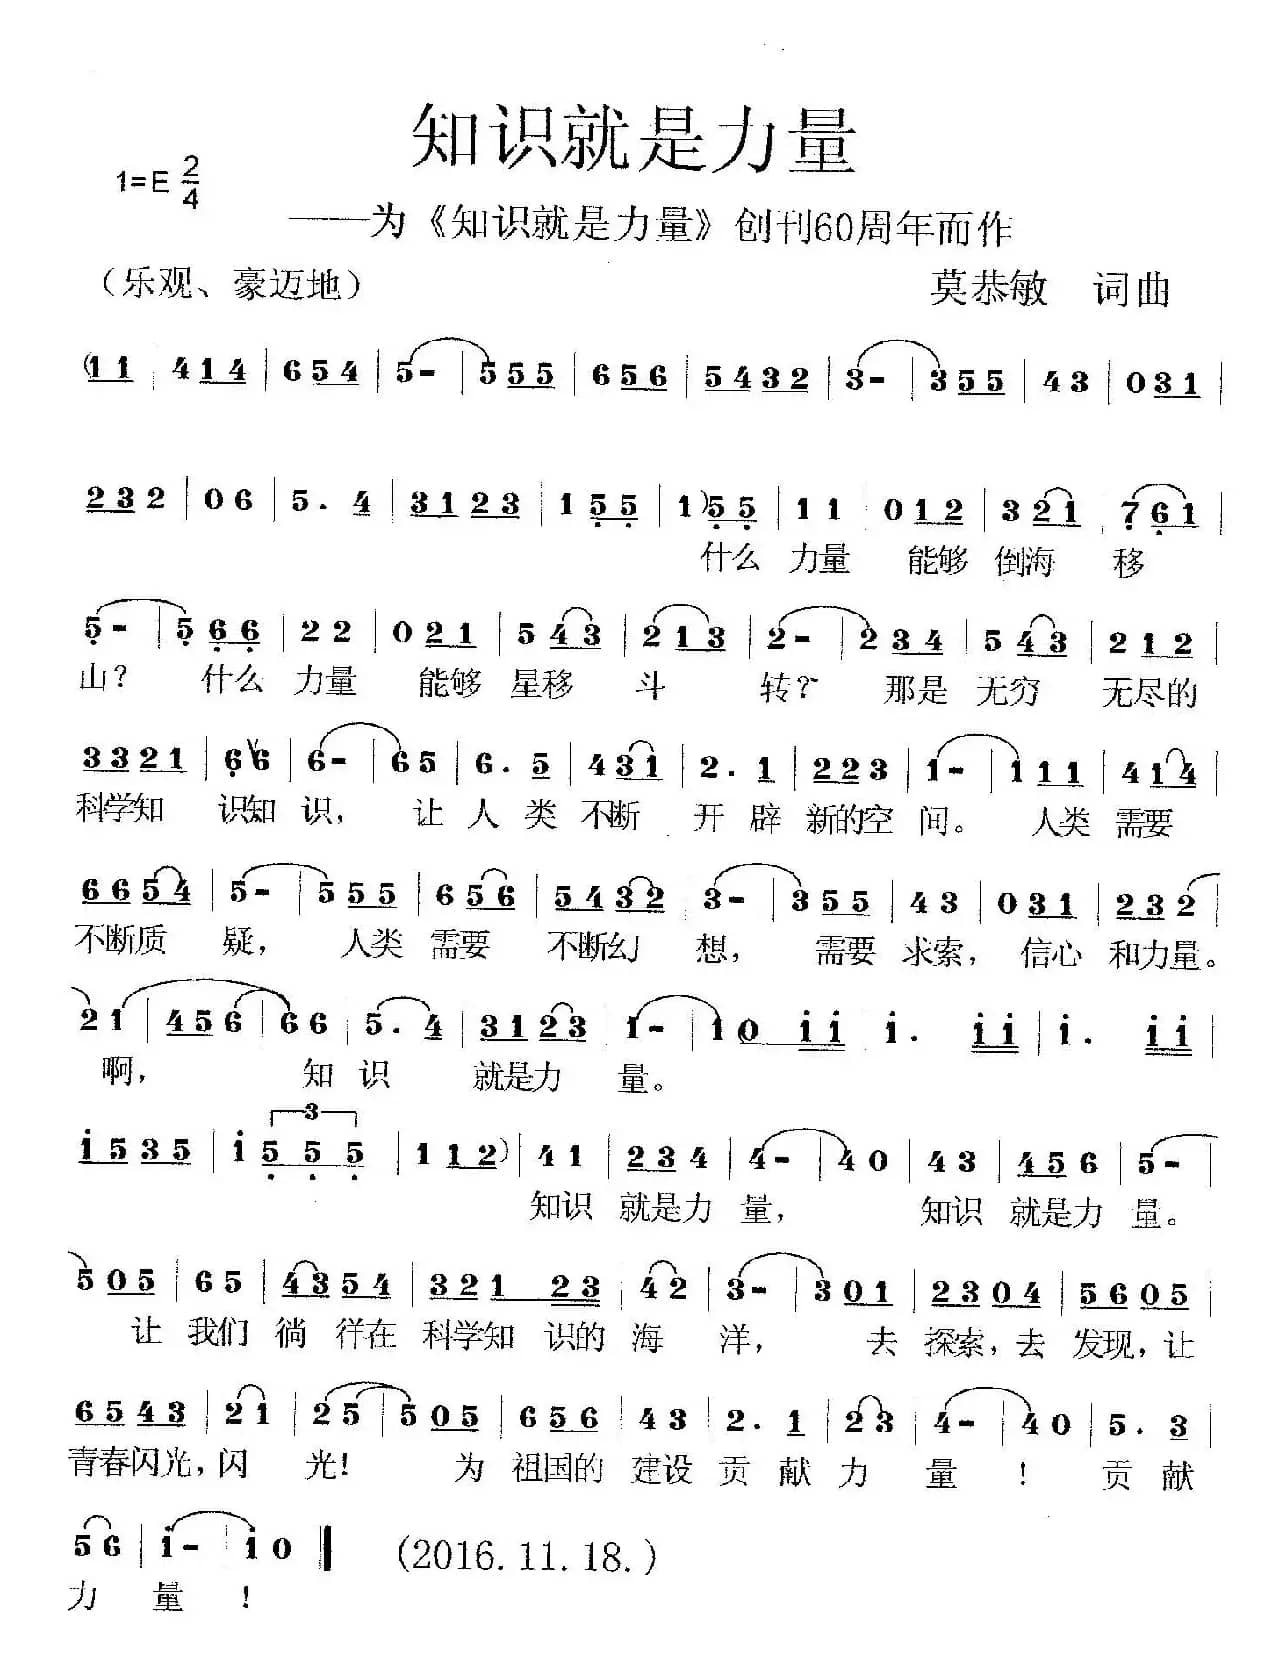 知识就是力量
1=E 2/4
——为《知识就是力量》创刊60周年而作
（乐观、豪迈地） 莫恭敏 词曲
(11 414 | 654 | 5- | 555 | 656 | 5432 | 3- | 355 | 43 | 031 |
232 | 06 | 5. 4 | 3123 | 155 | 1)55 | 11 | 012 | 321 | 761 |
什么 力量 能够 倒海 移
5- | 566 | 22 | 021 | 543 | 213 | 2- | 234 | 543 | 212 |
山？ 什么 力量 能够 星移 斗 转？ 那是 无穷 无尽的
3321 | 6∨6 | 6- | 65 | 6. 5 | 431 | 2. 1 | 223 | 1- | 111 | 414 |
科学知 识知 识， 让 人 类 不断 开 辟 新的空 间。 人类 需要
6654 | 5- | 555 | 656 | 5432 | 3- | 355 | 43 | 031 | 232 |
不断质 疑， 人类 需要 不断幻 想， 需要 求索， 信心 和力量。
21 | 456 | 66 | 5. 4 | 3123 | 1- | 10 i i | i. i i | i. i i |
啊， 知 识 就是力 量。
i535 | i 3 555 | 112) | 41 | 234 | 4- | 40 | 43 | 456 | 5- |
知识 就是力 量， 知识 就是力 量。
505 | 65 | 4354 | 321 23 | 42 | 3- | 301 | 2304 | 5605 |
让 我们 徜 徉在 科学知 识的 海 洋， 去 探索，去 发现，让
6543 | 21 | 25 | 505 | 656 | 43 | 2. 1 | 23 | 4- | 40 | 5. 3 |
青春闪光，闪 光！ 为 祖国的 建设 贡 献 力 量 ！ 贡 献
56 | i- | i0 ‖ (2016.11.18.)
力 量 ！